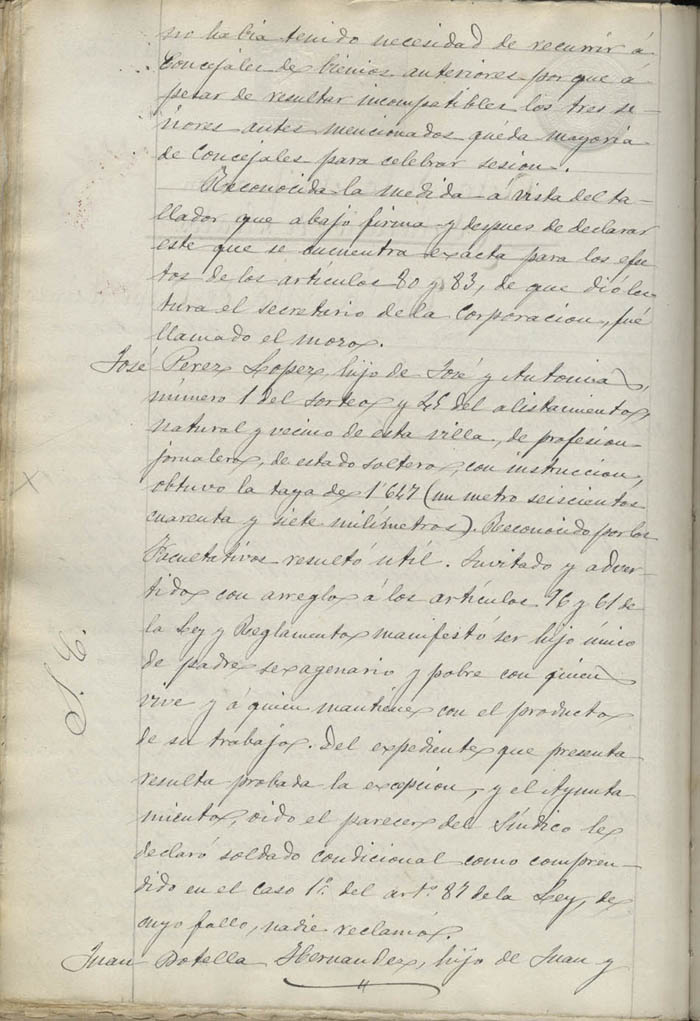 no había tenido necesidad de recurrir á
Concejales de bienios anteriores porque á
pesar de resultar incompatibles los tres se-
ñores antes mencionados queda mayoría
de Concejales para celebrar sesion.
Reconocida la medida á vista del ta-
llador que abajo firma y despues de declarar
este que se encuentra exacta para los efec-
tos de los artículos 80 y 83, de que dió lec-
tura el secretario de la Corporacion, fué
llamado el mozo.
José Perez Lopez, hijo de José y Antonia,
número 1 del sorteo y 45 del alistamiento,
natural y vecino de esta villa, de profesion
jornalero, de estado soltero, con instruccion,
obtuvo la taya de 1'647 (un metro seiscientos
cuarenta y siete milímetros). Reconocido por los
Facultativos resultó útil. Invitado y adver-
tido con arreglo á los artículos 76 y 61 de
la Ley y Reglamento manifestó ser hijo único
de padre sexagenario y pobre con quien
vive y á quien mantiene con el producto
de su trabajo. Del expediente que presenta
resulta probada la excepcion, y el Ayunta
miento, oido el parecer del Síndico le
declaró soldado condicional como compren-
dido en el caso 1º. del artº. 87 de la Ley, de
cuyo fallo, nadie reclamó.
Juan Botella Hernandez, hijo de Juan y